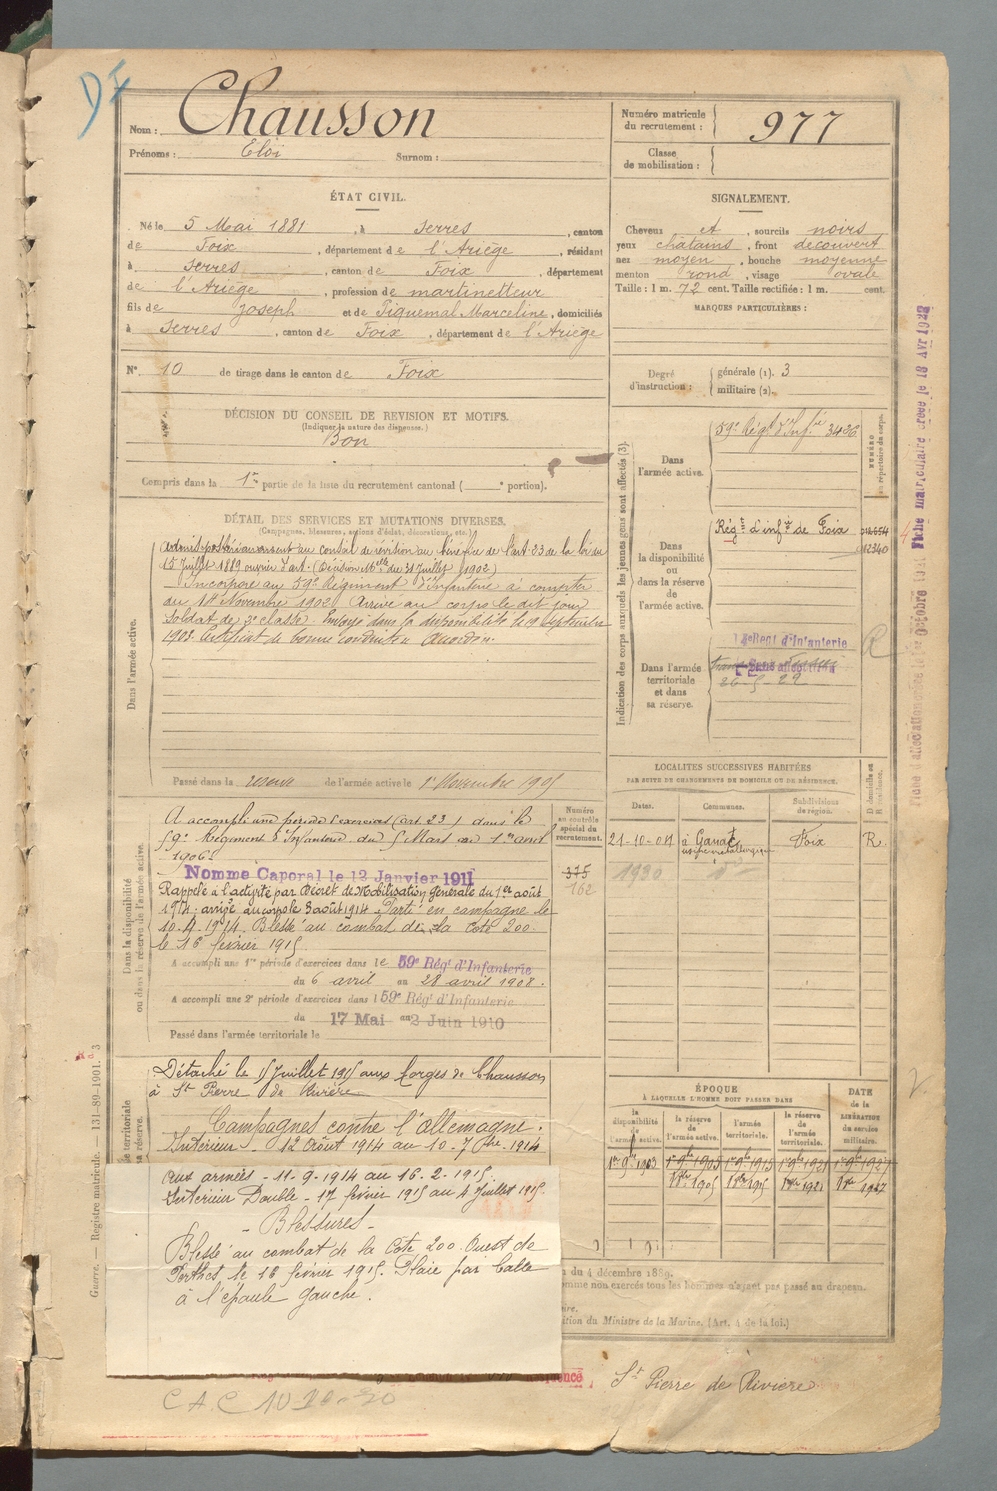 DF
Nom : Chausson
Prénoms : Eloi Surnom :
Numéro matricule du recrutement : 977
Classe de mobilisation :
ÉTAT CIVIL.
Né le 5 Mai 1881, à Serres, canton
de Foix, département de l'Ariège, résidant
à Serres, canton de Foix, département
de l'Ariège, profession de martinetteur
fils de Joseph et de Piquemal Marceline, domiciliés
à Serres, canton de Foix, département de l'Ariège
N° 10 de tirage dans le canton de Foix
SIGNALEMENT.
Cheveux et, sourcils noirs
yeux châtains, front découvert
nez moyen, bouche moyenne
menton rond, visage ovale
Taille : 1 m. 72 cent. Taille rectifiée : 1 m. cent.
MARQUES PARTICULIÈRES :
Degré d'instruction : générale (1). 3
militaire (2).
DÉCISION DU CONSEIL DE REVISION ET MOTIFS.
(Indiquer la nature des dispenses.)
Bon
Compris dans la 1re partie de la liste du recrutement cantonal ( e portion).
DÉTAIL DES SERVICES ET MUTATIONS DIVERSES.
(Campagnes, blessures, actions d'éclat, décorations, etc.)
Dans l'armée active.
Admis postérieurement au conseil de révision au bénéfice de l'art. 23 de la loi du
15 Juillet 1889 (Décision Mlle du 31 Juillet 1902)
Incorporé au 59e Régiment d'Infanterie à compter
du 14 Novembre 1902 Arrivé au corps le dit jour
Soldat de 2e classe. Envoyé dans la disponibilité le 19 Septembre
1903 Certificat de bonne conduite Accordé.
Passé dans la réserve de l'armée active le 1er Novembre 1905
Indication des corps auxquels les jeunes gens sont affectés (3).
NUMÉRO au répertoire du corps.
Dans l'armée active. 59e Régt d'Infie 3436
Dans la disponibilité ou dans la réserve de l'armée active. Régt d'infie de Foix
012340
Dans l'armée territoriale et dans sa réserve.
14e Régt d'Infanterie
Sans affectation
26-5-29
R
Fiche matriculaire créée le 18 AVR 1942
LOCALITÉS SUCCESSIVES HABITÉES
PAR SUITE DE CHANGEMENTS DE DOMICILE OU DE RÉSIDENCE.
D domicile ou R résidence.
Dates. Communes. Subdivisions de région.
21-10-04 à Ganac usine métallurgique Foix R.
1930 do
Dans la disponibilité ou dans la réserve de l'armée active.
Numéro au contrôle spécial du recrutement.
375
162
A accompli une période d'exercices (art 23) dans le
59e Régiment d'Infanterie du 5 Mars au 1er avril
1906.
Nommé Caporal le 12 Janvier 1911
Rappelé à l'activité par Décret de Mobilisation générale du 1er août
1914 ; arrivé au corps le 3 août 1914 Parti en campagne le
10-9-1914. Blessé au combat de la cote 200
le 16 février 1915
A accompli une 1re période d'exercices dans le 59e Régt d'Infanterie
du 6 avril au 28 avril 1908.
A accompli une 2e période d'exercices dans l 59e Régt d'Infanterie
du 17 Mai au 2 Juin 1910
Passé dans l'armée territoriale le
Détaché le 5 Juillet 1915 aux forges de Chausson
à St Pierre de Rivière
Campagnes contre l'Allemagne.
Intérieur - 12 Août 1914 au 10-7bre 1914
aux armées - 11-9-1914 au 16-2-1915
Intérieur Double - 17 février 1915 au 4 Juillet 1915.
- Blessures -
Blessé au combat de la Cote 200 Ouest de
Perthes le 16 février 1915. Plaie par balle
à l'épaule gauche.
ÉPOQUE
À LAQUELLE L'HOMME DOIT PASSER DANS
la disponibilité de l'armée active. la réserve de l'armée active. l'armée territoriale. la réserve de l'armée territoriale.
DATE de la LIBÉRATION du service militaire.
1er 9bre 1903 1er 9bre 1905 1er 9bre 1915 1er 9bre 1921 1er 9bre 1927
1905 1915 1921 1927
du 4 décembre 1889.
comme non exercés tous les hommes n'ayant pas passé au drapeau.
ition du Ministre de la Marine. (Art. 4 de la loi.)
Guerre. — Registre matricule. — 131-89-1901. 3
St Pierre de Rivière